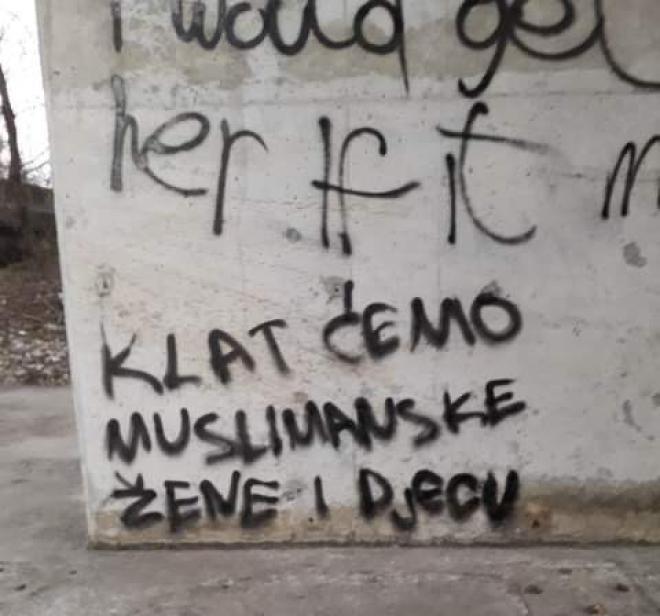 I would get
her if it
KLAT ĆEMO
MUSLIMANSKE
ŽENE I DJeCU